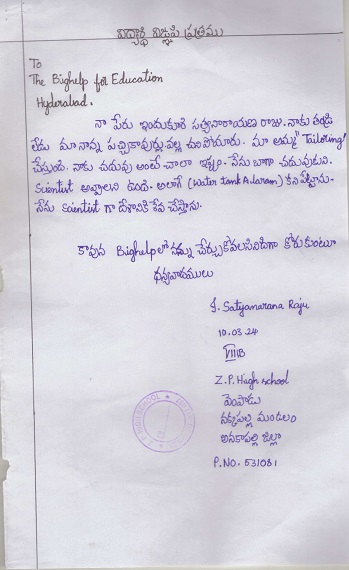 విద్యార్థి విజ్ఞప్తి పత్రము
To
The Bighelp for Education
Hyderabad.
నా పేరు ఇందుకూరి సత్యనారాయణ రాజు. నాకు తండ్రి
లేడు మా నాన్న పచ్చకామెర్లు వల్ల చనిపోయారు. మా అమ్మ "Tailoring"
చేస్తుంది. నాకు చదువు అంటే చాలా ఇష్టం. నేను బాగా చదువుకుని.
Scientist అవ్వాలని ఉంది. అలాగే (Water tank Alaram) కనిపెట్టాను.
నేను Scientist గా దేశానికి సేవ చేస్తాను.
కావున Bighelp లో నన్ను చేర్చుకోవలసినదిగా కోరుకుంటూ
ధన్యవాదములు
I. Satyamarana Raju
10.03.24
VIII B
Z.P. High school
నక్కపల్లి మండలం
అనకాపల్లి జిల్లా
P.NO. 531081